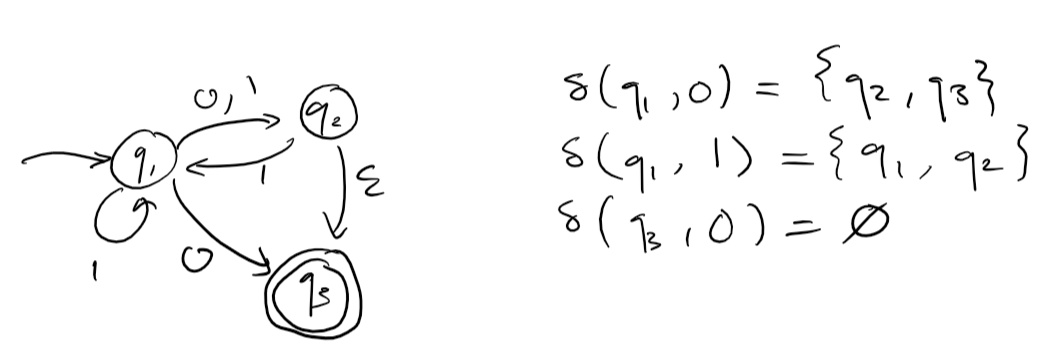 0, 1
q2
q1
1
ε
1
0
q3
δ(q1, 0) = {q2, q3}
δ(q1, 1) = {q1, q2}
δ(q3, 0) = ∅